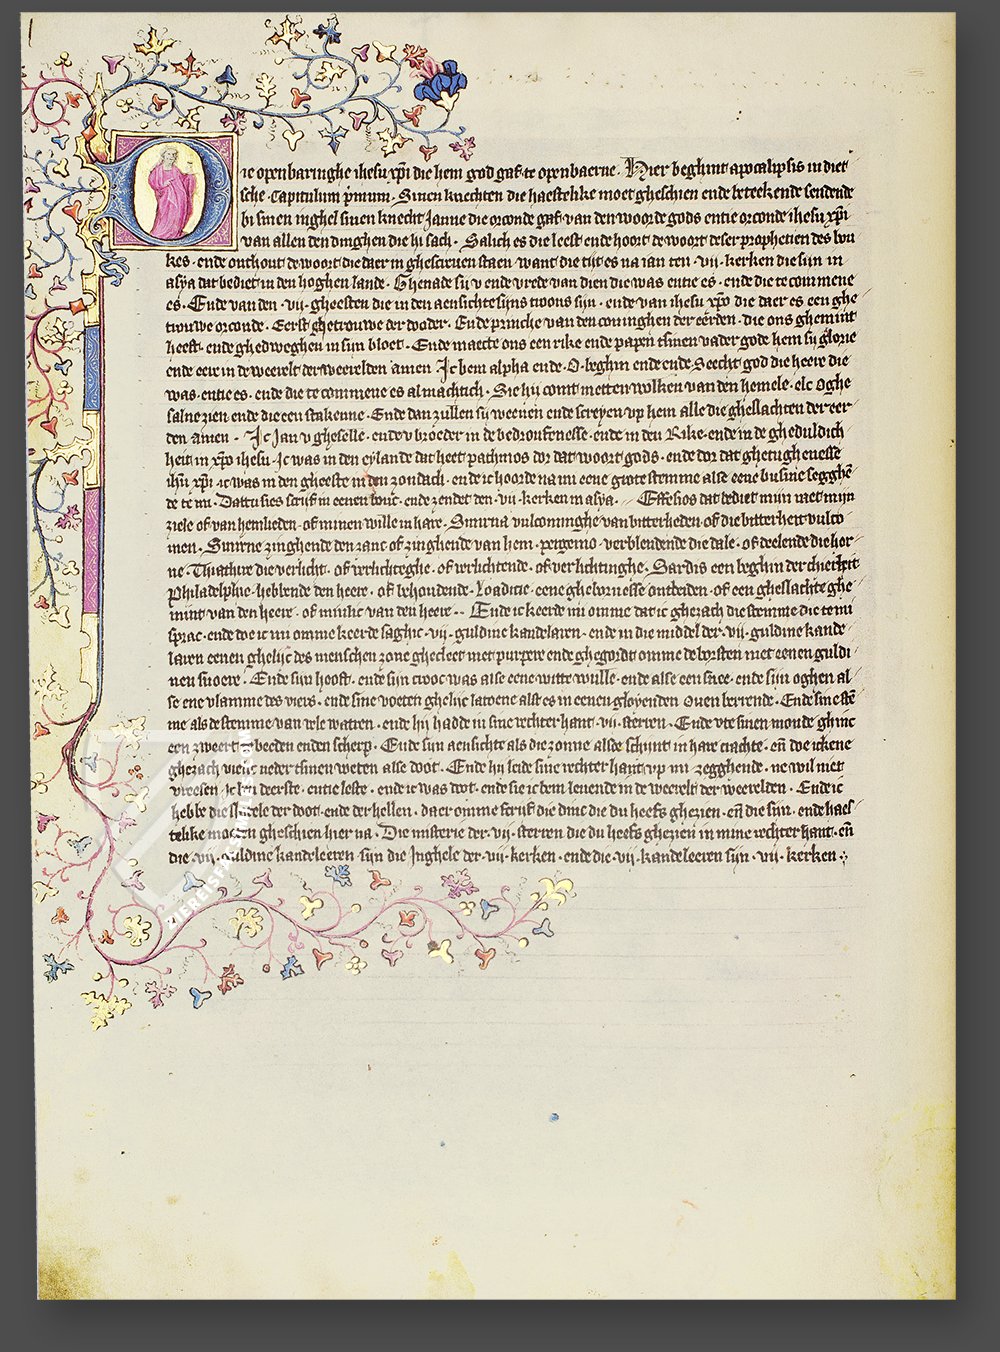 Die openbaringhe ihesu xpi die hem god gaf te openbaerne. Hier beghint apocalipsis in diet
sche. Capitulum primum. Sinen knechten die haestelike moet gheschien ende beteekende sendende
bi sinen inghel sinen knecht Janne die orconde gaf van den woorde gods entie orconde ihesu xpi
van allen den dinghen die hi sach. Salich es die leest ende hoort de woort deser prophetien des bou
kes. ende onthout de woort die daer in ghescreuen staen. want die tijt es na ian ten .vij. kerken die sijn in
asya dat bediet in den hoghen lande. Ghenade si v ende vrede van dien die was entie es. ende die te commene
es. Ende van den .vij. gheesten die in den aensichte sijns troons sijn. ende van ihesu xpo die daer es een ghe
trouwe orconde. Eerst ghetrouwe der dooder. Ende prinche van den coninghen der eerden. die ons ghemint
heeft. ende ghedweghen in sijn bloet. Ende maecte ons een rike ende papen tsinen vader gode hem sij glorie
ende eere in de weerelt der weerelden amen Ic bem alpha ende .O. beghin ende ende Seecht god die heere die
was. entie es. ende die te commene es almachtich. Sie hij comt metten wolken van den hemele. elc oghe
salne zien ende die een stakenne. Ende dan zullen sij weenen ende screyen vp hem alle die gheslachten der eer
den amen. Ic Jan v gheselle. ende v broeder in de bedroufenesse. ende in den Rike. ende in de gheduldich
heit in xpo ihesu. Ic was in den eylande dat heet pachmos dor dat woort gods. ende dor dat ghetughenesse
ihu xpi. ic was in den gheeste in den zondach. ende ic hoorde na mi eene groote stemme alse eene busine segghen
de te mi. Dattu sies scrijf in eenen bouc. ende zendet den .vij. kerken in asya. Effesios dat bediet mijn met mijn
ziele of van hemlieden. of minen wille in hare. Smirna vulcominghe van bitterheden. of die bitterheit vulco
men. Smirne zinghende den zanc of zinghende van hem. pergemo. verblendende die dale. of deelende die hor
ne. Thiathire die verlicht. of verlichteghe. of verlichtende. of verlichtinghe. Sardis een beghin der chierheit
Philadelphie. hebbende den heere. of behoudende. Loaditie. eene ghebornesse ontbeden. of een gheslachte ghe
mint van den heere. of musiic van den heere.. Ende ic keerde mi omme dat ic ghezach die stemme die te mi
sprac. ende doe ic mi omme keerde saghic .vij. guldine kandelaren. ende in die middel der .vij. guldine kande
laren eenen ghelijc des menschen zone ghecleet met purpere ende ghegordt omme de borsten met eenen guldi
nen snoere. Ende sijn hooft. ende sijn trooc was alse eene witte wulle. ende alse een snee. ende sijn oghen al
se ene vlamme des viers. ende sine voeten ghelijc latoene alst es in eenen gloyenden Ouen berrende. Ende sine stem
me als de stemme van vele watren. ende hij hadde in sine rechter hant .vij. sterren. Ende vte sinen monde ghinc
een zweert te beeden enden scherp. Ende sijn aensichte als die zonne alsoe schijnt in hare crachte. en doe ickene
ghezach viel ic neder tsinen voeten alse doot. Ende hij leide sine rechter hant vp mi zegghende. ne wil niet
vreesen ic bin deerste. entie leste. ende ic was doot. ende sie ic bem leuende in de weerelt der weerelden. Ende ic
hebbe die slotele der doot. ende der hellen. daer omme scrijf die dinc die du heefs ghezien. en die sijn. ende haes
telike moeten gheschien hier na. Die misterie der .vij. sterren die du heefs ghezien in mine rechter hant. en
die .vij. guldine kandeleeren sijn die Inghele der .vij. kerken. ende die .vij. kandeleeren sijn .vij. kerken.
ZIEREISFACSIMILES.COM